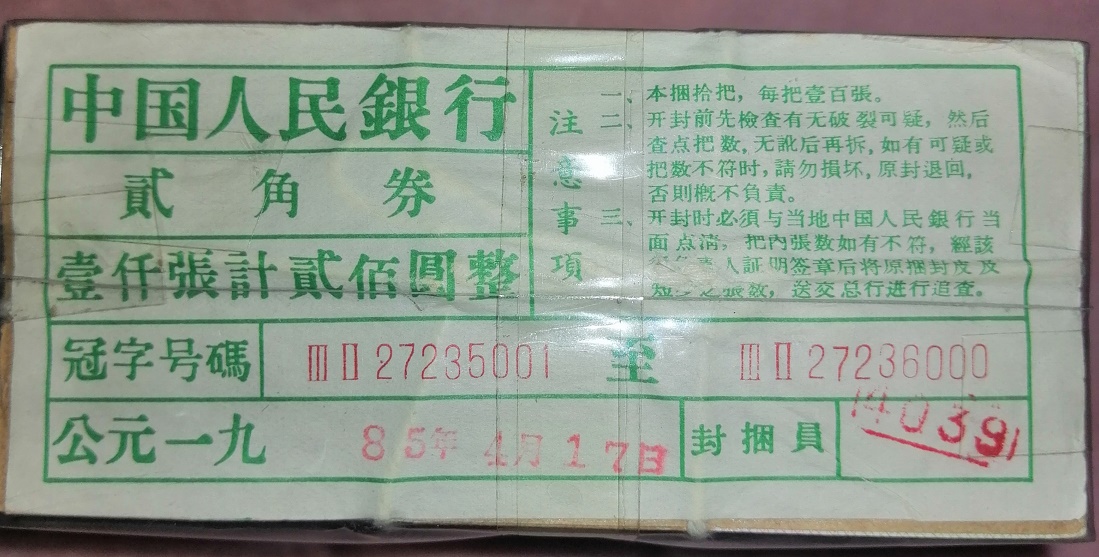 中国人民銀行
貳角券
壹仟張計貳佰圓整
注意事項
一、本捆拾把，每把壹百張。
二、开封前先檢查有无破裂可疑，然后
查点把数，无訛后再拆，如有可疑或
把数不符时，請勿損坏，原封退回，
否則概不負責。
三、开封时必須与当地中国人民銀行当
面点清，把內張数如有不符，經該
人証明签章后将原捆封皮及
張数，送交总行进行追查。
冠字号碼 ⅢⅡ27235001 至 ⅢⅡ27236000
公元一九 85年4月17日 封捆員 140391